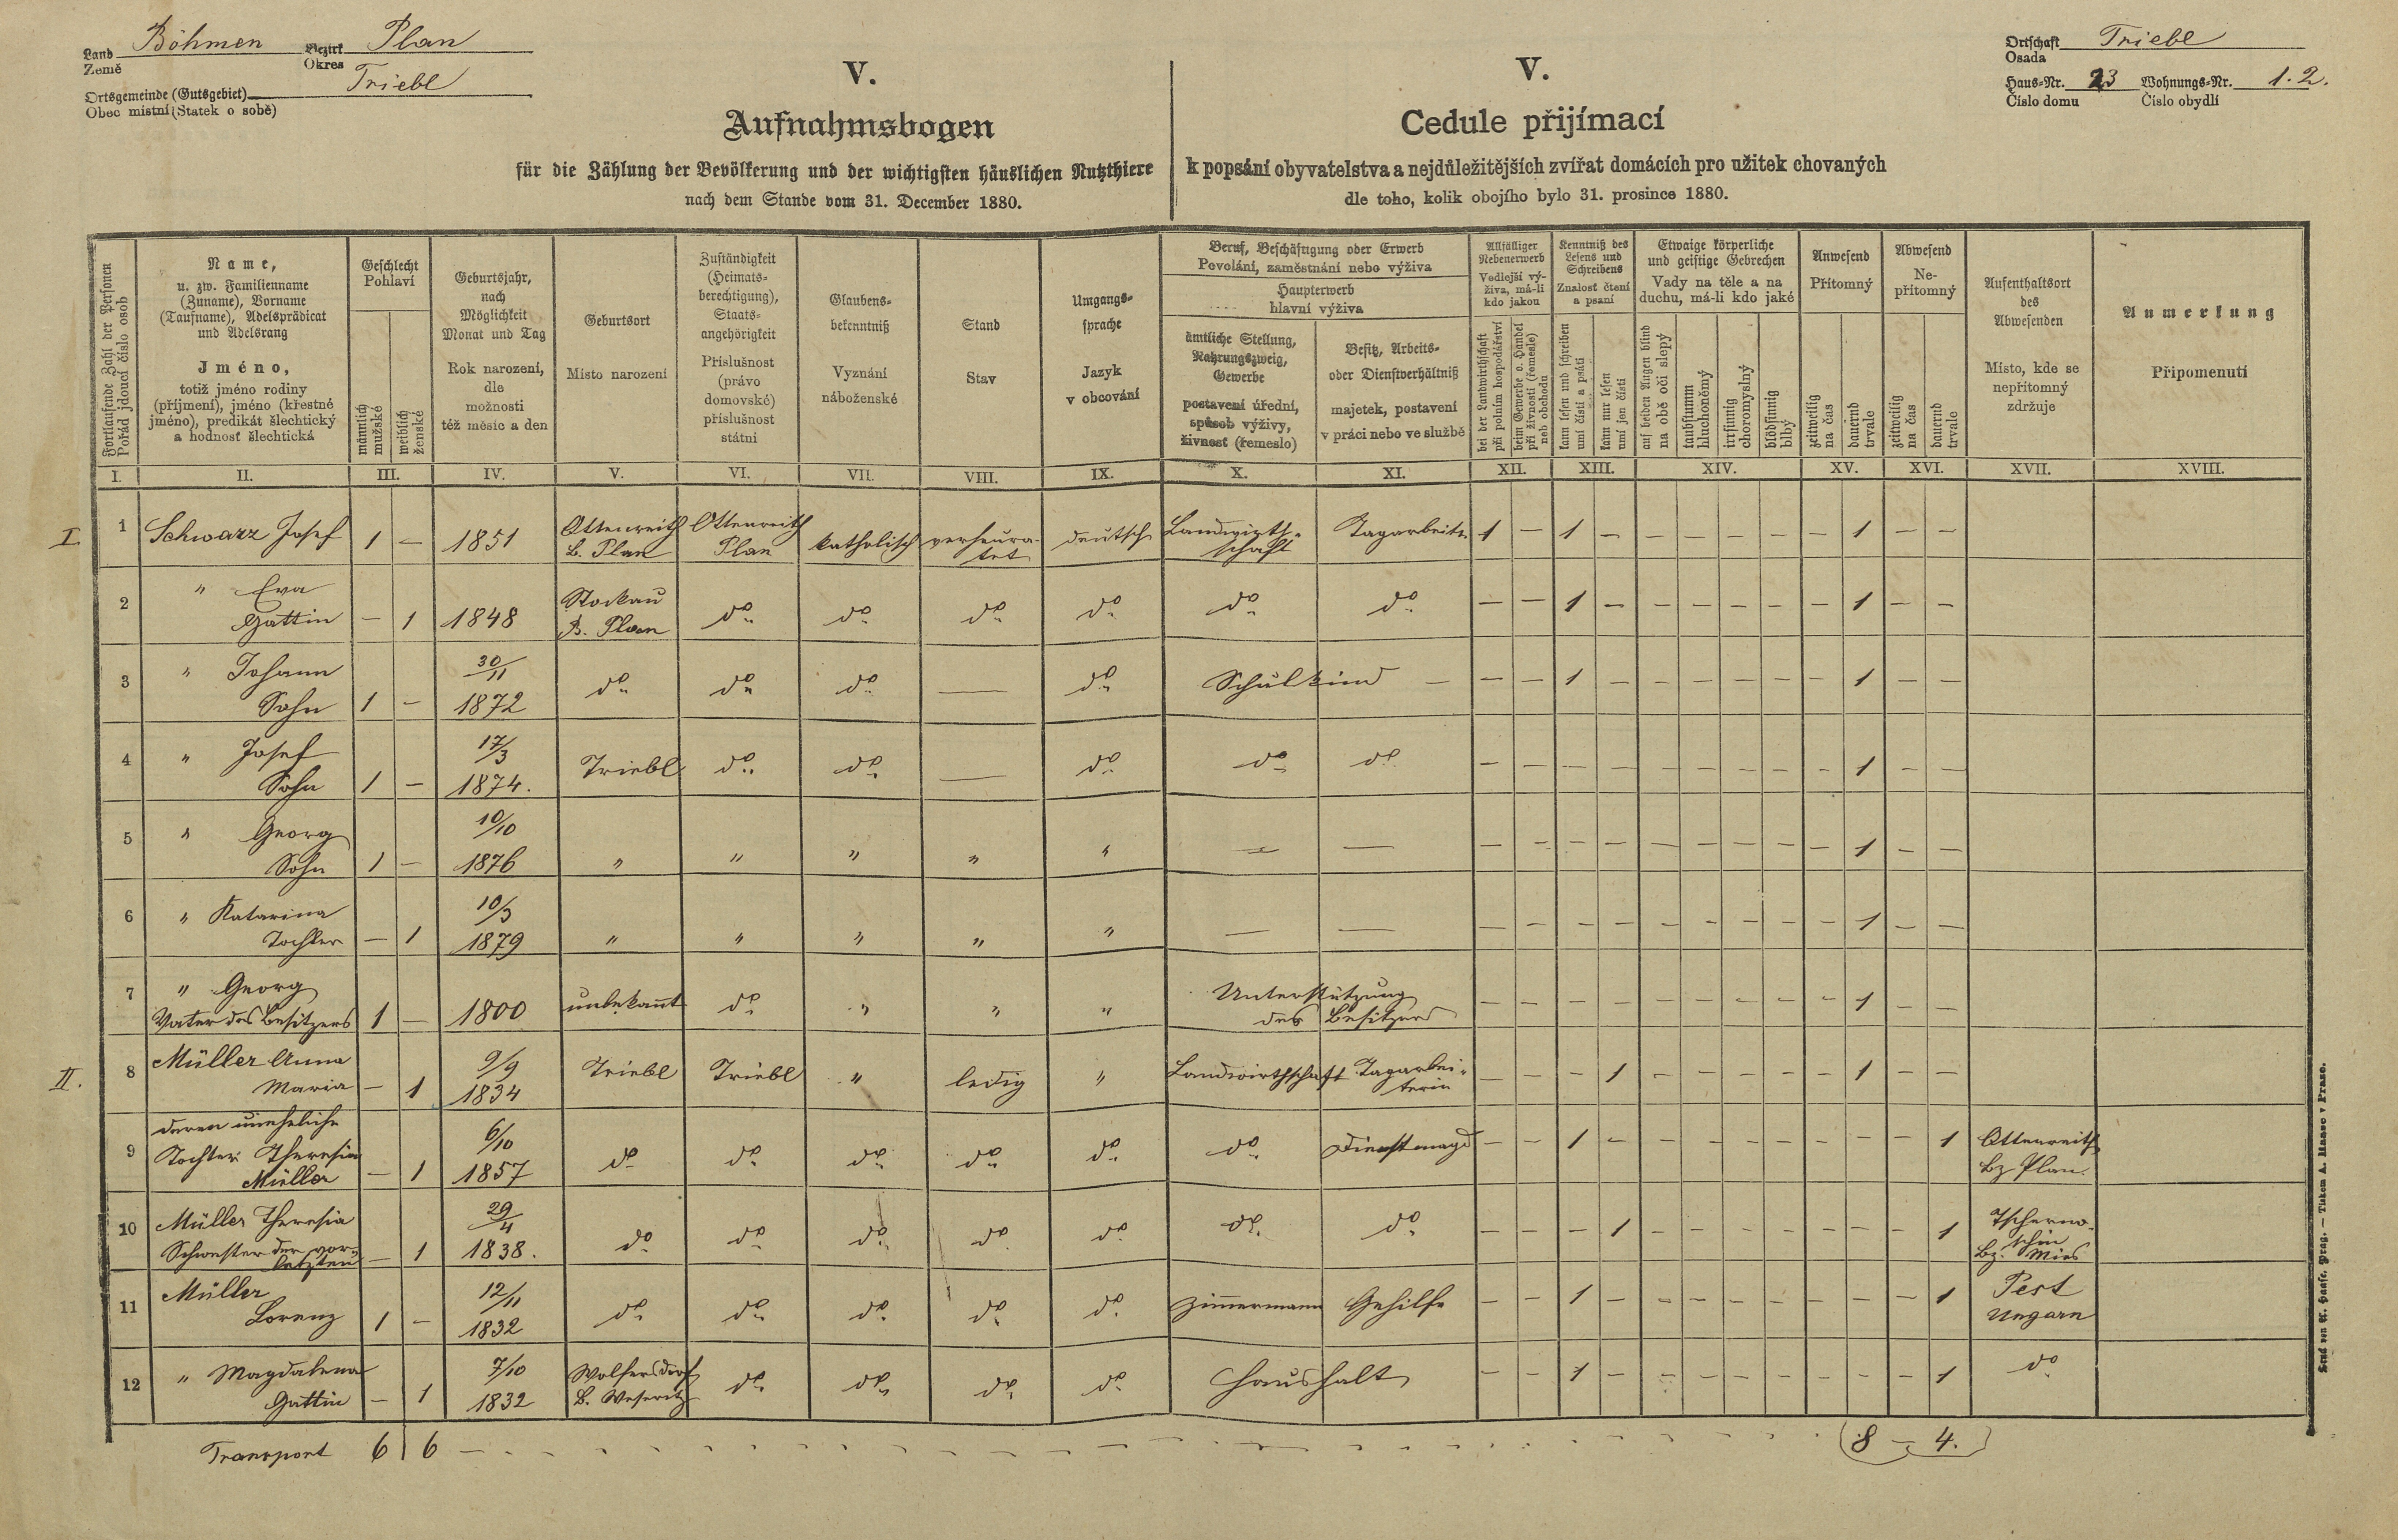 Land Böhmen Bezirk Plan
Země Okres
Ortsgemeinde (Gutsgebiet) Triebl
Obec mistní (Statek o sobě)
V.
Aufnahmsbogen
für die Zählung der Bevölkerung und der wichtigsten häuslichen Nutzthiere
nach dem Stande vom 31. December 1880.
V.
Cedule přijímací
k popsání obyvatelstva a nejdůležitějších zvířat domácích pro užitek chovaných
dle toho, kolik obojího bylo 31. prosince 1880.
Ortschaft Triebl
Osada
Haus-Nr. 23 Wohnungs-Nr. 1. 2.
Číslo domu Číslo obydlí
Fortlaufende Zahl der Personen
Pořád jdoucí číslo osob
Name,
u. zw. Familienname
(Zuname), Vorname
(Taufname), Adelsprädicat
und Adelsrang
Jméno,
totiž jméno rodiny
(příjmení), jméno (křestné
jméno), predikát šlechtický
a hodnost šlechtická
Geschlecht
Pohlaví
männlich
mužské
weiblich
ženské
Geburtsjahr,
nach
Möglichkeit
Monat und Tag
Rok narození,
dle
možnosti
též měsíc a den
Geburtsort
Místo narození
Zuständigkeit
(Heimats-
berechtigung),
Staats-
angehörigkeit
Příslušnost
(právo
domovské)
příslušnost
státní
Glaubens-
bekenntniß
Vyznání
náboženské
Stand
Stav
Umgangs-
sprache
Jazyk
v obcování
Beruf, Beschäftigung oder Erwerb
Povolání, zaměstnání nebo výživa
Haupterwerb
hlavní výživa
ämtliche Stellung,
Nahrungszweig,
Gewerbe
postavení úřední,
spůsob výživy,
živnost (řemeslo)
Besitz, Arbeits-
oder Dienstverhältniß
majetek, postavení
v práci nebo ve službě
Allfälliger
Nebenerwerb
Vedlejší vý-
živa, má-li
kdo jakou
bei der Landwirthschaft
při polním hospodářství
beim Gewerbe o. Handel
při živnosti (řemesle)
neb obchodu
Kenntniß des
Lesens und
Schreibens
Znalosť čtení
a psaní
kann lesen und schreiben
umí čísti a psáti
kann nur lesen
umí jen čísti
Etwaige körperliche
und geistige Gebrechen
Vady na těle a na
duchu, má-li kdo jaké
auf beiden Augen blind
na obě oči slepý
taubstumm
hluchoněmý
irrsinnig
choromyslný
blödsinnig
blbý
Anwesend
Přítomný
zeitweilig
na čas
dauernd
trvale
Abwesend
Ne-
přítomný
zeitweilig
na čas
dauernd
trvale
Aufenthaltsort
des
Abwesenden
Místo, kde se
nepřítomný
zdržuje
Anmerkung
Připomenutí
I. II. III. IV. V. VI. VII. VIII. IX. X. XI. XII. XIII. XIV. XV. XVI. XVII. XVIII.
I. 1 Schwarz Josef 1 – 1851 Ottenreith B. Plan Ottenreith Plan katholisch verheura-tet deutsch Landwirth-schaft Tagarbeiter 1 – 1 – – – – – – 1 – –
2 " Eva Gattin – 1 1848 Stockau B. Plan do do do do do do – – 1 – – – – – – 1 – –
3 " Johann Sohn 1 – 30/11 1872 do do do — do Schulkind – – – 1 – – – – – – 1 – –
4 " Josef Sohn 1 – 17/3 1874. Triebl do do — do do do – – – – – – – – – 1 – –
5 " Georg Sohn 1 – 10/10 1876 " " " " " — — – – – – – – – – – 1 – –
6 " Katarina Tochter – 1 10/3 1879 " " " " " — — – – – – – – – – – 1 – –
7 " Georg Vater des Besitzers 1 – 1800 unbekannt do " " " Unterstützung des Besitzers – – – – – – – – – 1 – –
II. 8 Müller Anna Maria – 1 9/9 1834 Triebl Triebl " ledig " Landwirthschaft Tagarbei-terin – – – 1 – – – – – 1 – –
9 deren uneheliche Tochter Theresia Müller – 1 6/10 1857 do do do do do do Dienstmagd – – 1 – – – – – – – – 1 Ottenreith Bz Plan.
10 Müller Theresia Schwester der vor-letzten – 1 29/4 1838. do do do do do do do – – – 1 – – – – – – – 1 Tscherno-schin Bz. Mies
11 Müller Lorenz 1 – 12/11 1832 do do do do do Zimmermann Gehilfe – – 1 – – – – – – – – 1 Pest Ungarn
12 " Magdalena Gattin – 1 7/10 1832 Wolfersdorf B. Weseritz do do do do Haushalt – – 1 – – – – – – – – 1 do
Transport 6 6 8 – 4.
Druck von A. Haase, Prag. — Tiskem A. Haase v Praze.